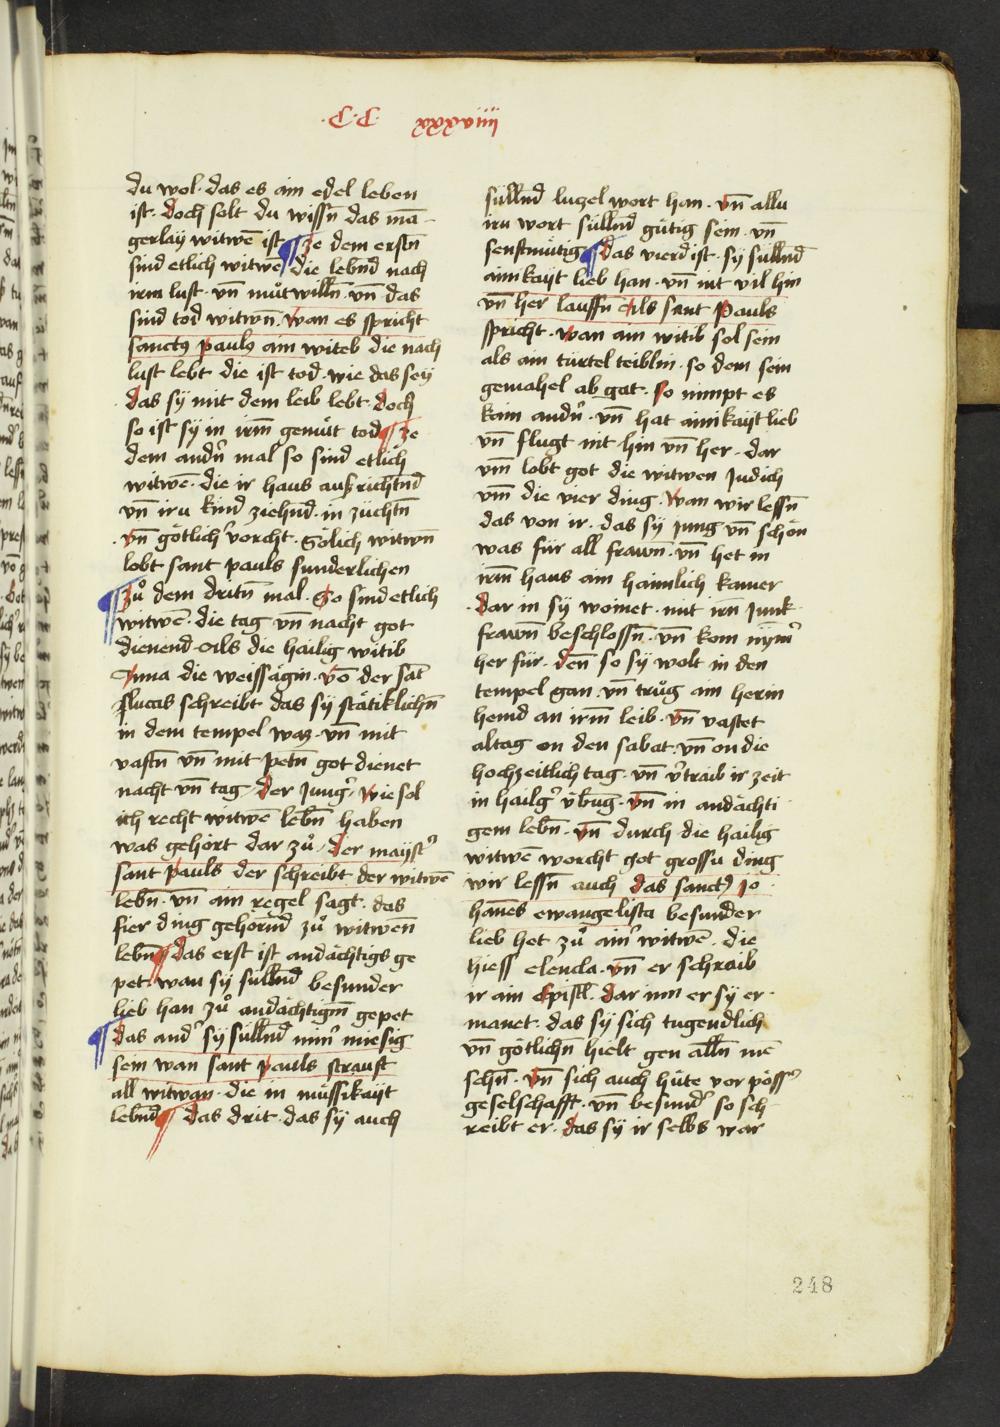 ·C·C· xxxxviiij
du wol· das es ain edel leben
ist· doch solt du wissñ das mā-
gerlaÿ witwē ist ¶ Ze dem erstñ
sind etlich witwē die lebnd nach
irm lust· vn̄ mu̇twillñ· vn̄ das
sind tod witwn̄· wan es spricht
sanctꝰ paulꝰ ain witeb die nach
lust lebt die ist tod· wie das seÿ
das sÿ mit dem leib lebt· doch
so ist sÿ in irm̄ gemüt tod ¶ ze
dem andn̄ mal so sind etlich
witwē· die ir haus außrichtnd
vn̄ iru kind ziehnd· in züchtn̄
vn̄ götlichˀ vorcht· Sölich witwn̄
lobt sant pauls sunderlichen
¶ Zů dem dritn̄ mal· So sind etlich
witwē· die tag vn̄ nacht got
dienend· Als die hailig witib
Anna die weissagin· vō der sāt
lucas schreibt das sÿ stätiklichn̄
in dem tempel waz· vn̄ mit
vastn̄ vn̄ mit petn̄ got dienet
nacht vn̄ tag· der jungˀ· wie sol
ich recht witwē lebn̄ haben
was gehört dar zů· der maÿstˀ
sant pauls der schreibt der witwē
lebn̄· vn̄ ain regel sagt· das
fier ding gehörnd zů witwēn
lebn̄ ¶ das erst ist andächtigs ge
pet· wan sÿ süllnd besunder
lieb han zů andächtigm̄ gepet
¶ das andˀ sÿ süllnd nimˀ miesig
sein wan sant pauls strauft
all witwan· die in müssikaÿt
lebnd ¶ das drit· das sÿ auch
süllnd luzel wort han· vn̄ allu
iru wort süllnd gütig sein· vn̄
senftmütig ¶ das vierd ist· sÿ süllnd
ainikaÿt lieb han· vn̄ nit vil hin
vn̄ her lauffn̄ Als sant Pauls
spricht· wan ain witib sol sein
als ain türtel teiblin· so dem sein
gemahel ab gat· so nimpt es
kain andn̄· vn̄ hat ainikaÿt lieb
vn̄ flugt nit· hin vn̄ her· dar
vm̄ lobt got die witwen Judich
vm̄ die vier ding· Wan wir lessn̄
das von ir· das sÿ jung vn̄ schön
was für all frawn̄· vn̄ het in
irm̄ haus ain haimlich kamer
dar in sÿ woinet· mit irn junk·
frawn̄ beschlossn̄· vn̄ kom nÿmˀ
her für· den̄ so sÿ wolt in den
tempel gan· vn̄ trůg ain herin
hemd an irm̄ leib· vn̄ vastet
altag on den sabat· vn̄ on die
hochzeitlich tag· vn̄ vˀtraib ir zeit
in hailgˀ v̈buḡ· vn̄ in andächti
gem lebn̄· vn̄ durch die hailig
witwē worcht got grossu ding
wir lessn̄ auch das sanctꝰ jo·
hanēs ewangelista besunder
lieb het zů ainˀ witwē· die
hiess elencla· vn̄ er schraib
ir ain Epistl· dar inn er sÿ er·
manet· das sÿ sich tugendlich
vn̄ götlichn̄ hielt gen alln̄ me
schn̄· vn̄ sich auch hüte vor pössˀ
geselschafft· vn̄ besundˀ so sch
reibt er· das sÿ ir selbs war
248